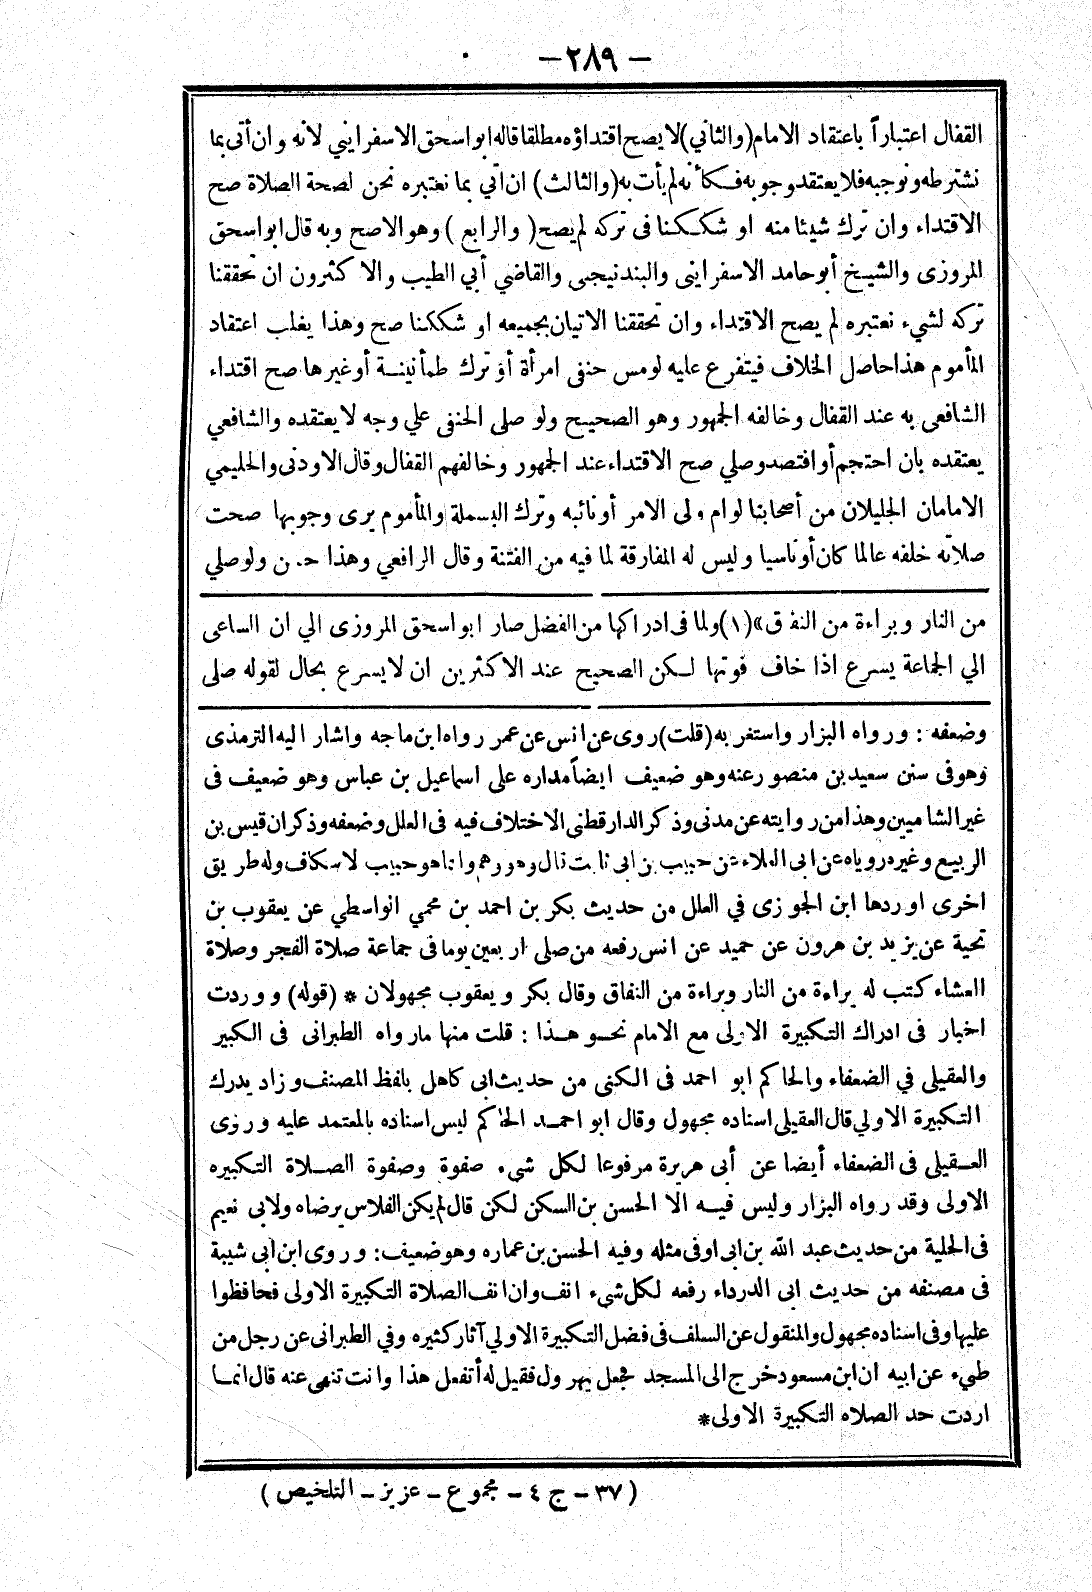 — ٢٨٩ —
القفال اعتباراً باعتقاد الامام (والثاني) لا يصح اقتداؤه مطلقا قاله ابواسحق الاسفرايني لانه وان أتى بما
نشترطه ونوجبه فلا يعتقد وجوبه فكأنه لم يأت به (والثالث) ان اتي بما نعتبره نحن لصحة الصلاة صح
الاقتداء وان ترك شيئا منه او شككنا فى تركه لم يصح ( والرابع ) وهو الاصح وبه قال ابواسحق
المروزى والشيخ أبو حامد الاسفراينى والبندنيجى والقاضي أبي الطيب والاكثرون ان تحققنا
تركه لشيء نعتبره لم يصح الاقتداء وان تحققنا الاتيان بجميعه او شككنا صح وهذا يغلب اعتقاد
المأموم هذا حاصل الخلاف فيتفرع عليه لومس حنفى امرأة أو ترك طمأنينة أوغيرها صح اقتداء
الشافعى به عند القفال وخالفه الجمهور وهو الصحيح ولو صلى الحنفى علي وجه لا يعتقده والشافعي
يعتقده بان احتجم أوافتصد وصلي صح الاقتداء عند الجمهور وخالفهم القفال وقال الاودنى والحليمي
الامامان الجليلان من أصحابنا لوام ولى الامر أو نائبه وترك البسملة والمأموم يرى وجوبها صحت
صلاته خلفه عالما كان أوناسيا وليس له المفارقة لما فيه من الفتنة وقال الرافعي وهذا حسن ولوصلي
من النار وبراءة من النفاق» (١) ولما فى ادراكها من الفضل صار ابواسحق المروزى الي ان الساعى
الي الجماعة يسرع اذا خاف فوتها لكن الصحيح عند الاكثرين ان لا يسرع بحال لقوله صلى
وضعفه : ورواه البزار واستغربه (قلت) روى عن انس عن عمر رواه ابن ماجه واشار اليه الترمذى
وهوفى سنن سعيد بن منصور عنه وهو ضعيف ايضاً مداره على اسماعيل بن عباس وهو ضعيف فى
غير الشاميين وهذا من روايته عن مدنى وذكر الدارقطنى الاختلاف فيه فى العلل وضعفه وذكر ان قيس بن
الربيع وغيره روياه عن ابى العلاء عن حبيب بن ابى ثابت قال وهو وهم وانما هو حبيب لاسكاف وله طريق
اخرى اوردها ابن الجوزى في العلل من حديث بكر بن احمد بن محمي الواسطي عن يعقوب بن
تحية عن يزيد بن هرون عن حميد عن انس رفعه من صلى اربعين يوما فى جماعة صلاة الفجر وصلاة
العشاء كتب له براءة من النار وبراءة من النفاق وقال بكر ويعقوب مجهولان * (قوله) ووردت
اخبار فى ادراك التكبيرة الاولى مع الامام نحو هذا : قلت منها مارواه الطبرانى فى الكبير
والعقيلى في الضعفاء والحاكم ابو احمد فى الكنى من حديث ابى كاهل بلفظ المصنف وزاد يدرك
التكبيرة الاولي قال العقيلى اسناده مجهول وقال ابو احمد الحاكم ليس اسناده بالمعتمد عليه وروى
العقيلى فى الضعفاء أيضا عن أبى هريرة مرفوعا لكل شىء صفوة وصفوة الصلاة التكبيره
الاولى وقد رواه البزار وليس فيه الا الحسن بن السكن لكن قال لم يكن الفلاس يرضاه ولابى نعيم
فى الحلية من حديث عبد الله بن ابى اوفى مثله وفيه الحسن بن عماره وهو ضعيف : وروى ابن ابى شيبة
فى مصنفه من حديث ابى الدرداء رفعه لكل شىء انف وان انف الصلاة التكبيرة الاولى فحافظوا
عليها وفى اسناده مجهول والمنقول عن السلف فى فضل التكبيرة الاولي آثار كثيره وفي الطبرانى عن رجل من
طىء عن ابيه ان ابن مسعود خرج الى المسجد فجعل يهرول فقيل له أتفعل هذا وانت تنهى عنه قال انما
اردت حد الصلاه التكبيرة الاولى*
( ٣٧ - ج ٤ - مجموع - عزيز - التلخيص )